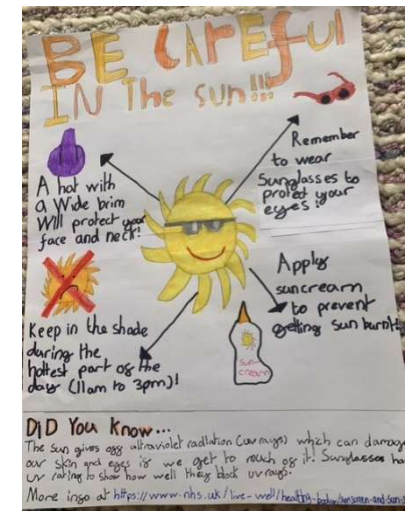 BE CAREFUL
IN The SUN!!!
Remember
to wear
Sunglasses to
protect your
eyes!
A hat with
a Wide brim
Will protect your
face and neck!
Apply
suncream
to prevent
getting sun burnt!
sun-
cream
Keep in the shade
during the
hottest part of the
day (11am to 3pm)!
DiD You Know...
The sun gives off ultraviolet radiation (uv rays) which can damage
our skin and eyes if we get to much of it! Sunglasses ha
uv rating to show how well they block uv rays.
More info at https://www.nhs.uk/live-well/healthy-body/sunscreen-and-sun-s